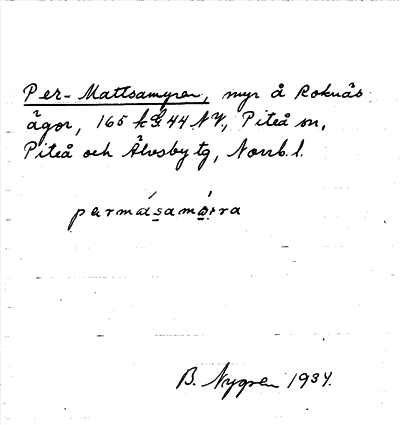 Per-Mattsamyran, myr å Roknäs
ägor, 165 h G. 44 NV, Piteå sn,
Piteå och Älvsby tg, Norrb. l.
permásamó̤ra
B. Nygren 1934.